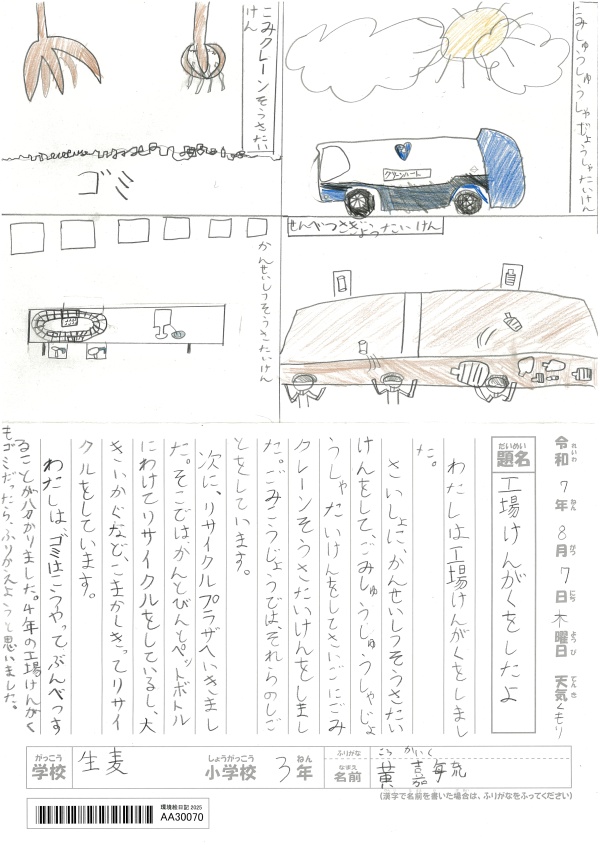 ごみクレーンそうさたい
けん
ゴミ
ごみしゅうしゅうしゃじょうしゃたいけん
グリーンハート
かんせいしつそうさたいけん
せんべつさぎょうたいけん
令和 7年 8月 7日 木曜日 天気 くもり
れいわ ねん がつ にち ようび てんき
だいめい
題名
工場けんがくをしたよ
わたしは工場けんがくをしまし
た。
さいしょに、かんせいしつそうさたい
けんをして、ごみしゅうしゅうしゃじょ
うしゃたいけんをしてさいごにごみ
クレーンそうさたいけんをしまし
た。ごみこうじょうでは、それらのしご
とをしています。
次に、リサイクルプラザへいきまし
た。そこではかんとびんとペットボトル
にわけてリサイクルをしているし、大
きいかぐなど、こまかしきってリサイ
クルをしています。
わたしは、ゴミはこうやってぶんべつす
ることが分かりました。4年の工場けんがく
もゴミだったら、ふりかえようと思いました。
がっこう
学校
生麦
しょうがっこう
小学校
3
ねん
年
ふりがな
なまえ
名前
黄
(漢字で名前を書いた場合は、ふりがなをふってください)
環境絵日記 2025
AA30070